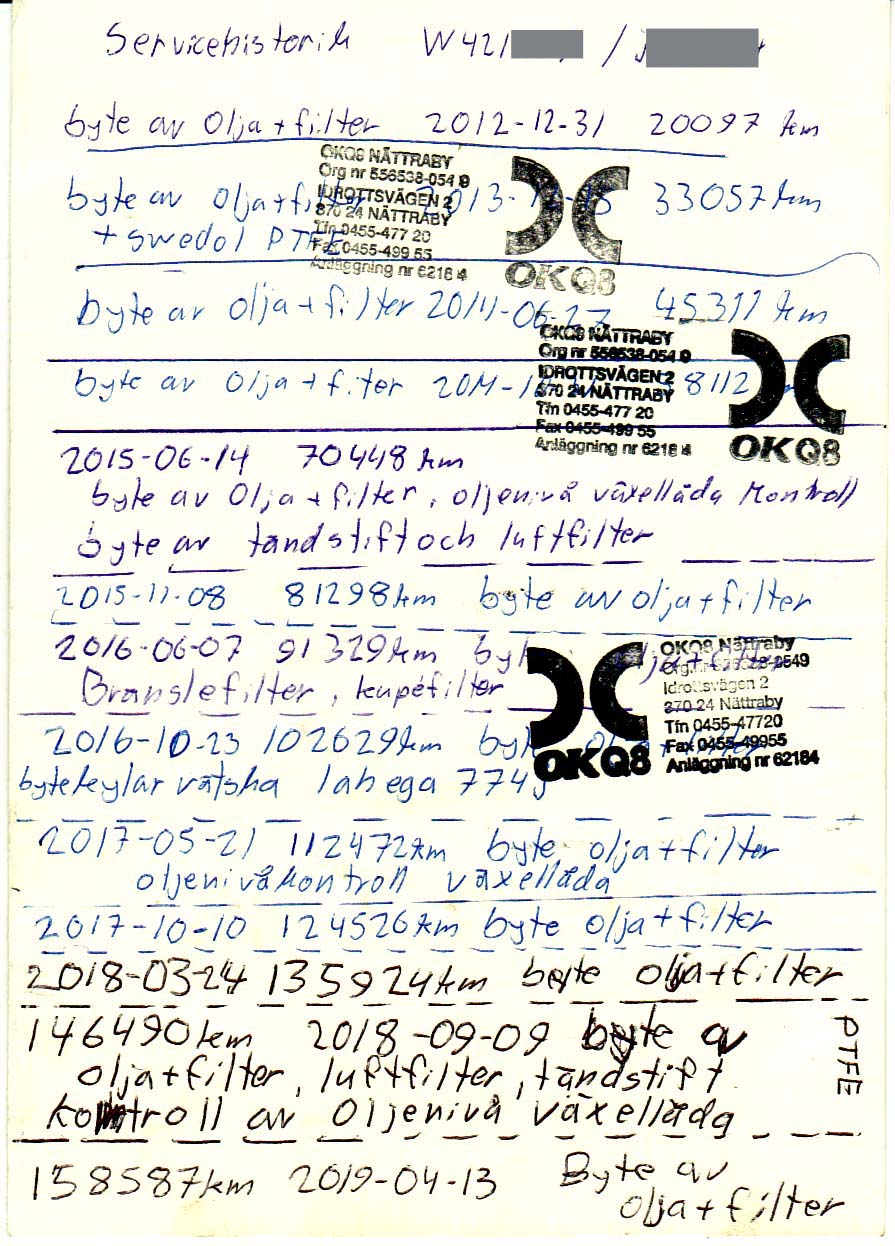 Servicehistorik W421 /
byte av olja+filter 2012-12-31 20097 km
OKQ8 NÄTTRABY
Org nr 556538-054 9
IDROTTSVÄGEN 2
370 24 NÄTTRABY
Tfn 0455-477 20
Fax 0455-499 55
Anläggning nr 6218 4
OKQ8
byte av olja+filter 2013-12- 33057km
+ swedol PTFE
byte av olja+filter 2014-06-27 45311 km
OKQ8 NÄTTRABY
Org nr 556538-054 9
IDROTTSVÄGEN 2
370 24 NÄTTRABY
Tfn 0455-477 20
Fax 0455-499 55
Anläggning nr 6218 4
OKQ8
byte av olja+filter 2014-1 8112
2015-06-14 70448 km
byte av olja+filter, oljenivå växellåda kontroll
byte av tändstift och luftfilter
2015-11-08 81298km byte av olja+filter
2016-06-07 91329km byte olja+filter
Bränslefilter, kupéfilter
OKQ8
OKQ8 Nättraby
Org.nr 556538-0549
Idrottsvägen 2
370 24 Nättraby
Tfn 0455-47720
Fax 0455-49955
Anläggning nr 62184
2016-10-23 102629km byte
byte kylar vätska lahega 774
2017-05-21 112472km byte olja+filter
oljenivåkontroll växellåda
2017-10-10 124526km byte olja+filter
2018-03-24 135924km byte olja+filter
146490km 2018-09-09 byte av
olja+filter, luftfilter, tändstift
kontroll av oljenivå växellåda
PTFE
158587km 2019-04-13 Byte av
olja+filter